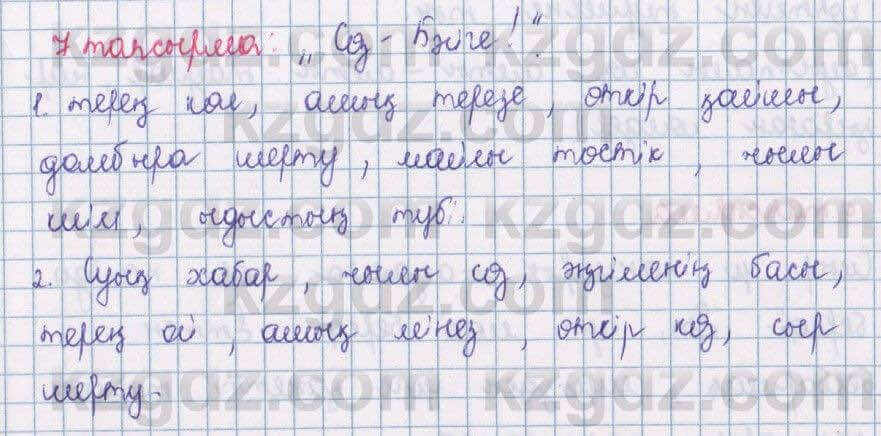 7 тапсырма: „Сөз - Бәйге!“.
1. терең көл, ашық терезе, өткір қайшы,
домбыра шерту, майлы төстік, жылы
шім, ыдыстың түбі.
2. Суық хабар, жылы сөз, әңгіменің басы,
терең ой, ашық мінез, өткір көз, сыр
шерту.
kzgdz.com